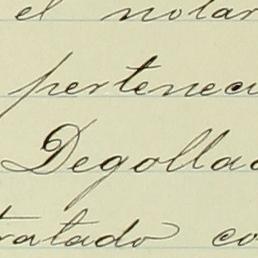 el notar
pertenec
Degollad
tratado co